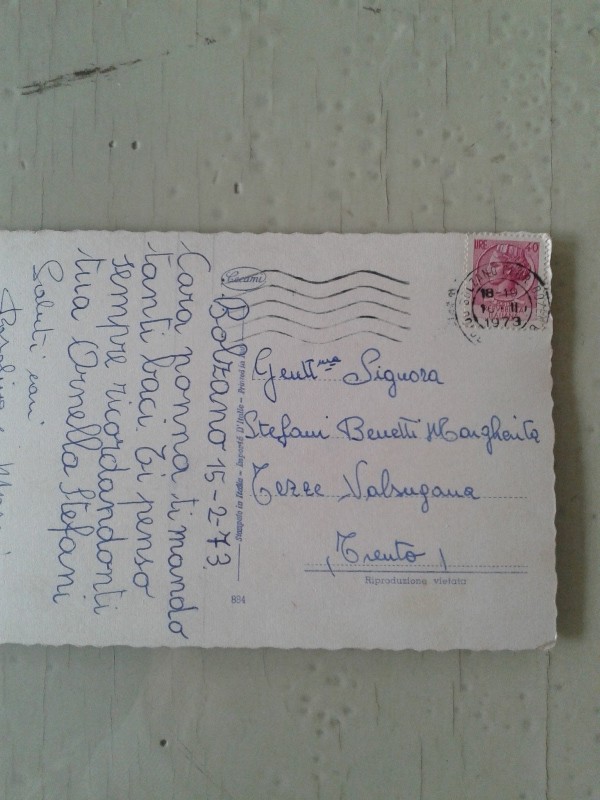 Bolzano 15-2-73
Cara nonna ti mando
tanti baci. Ti penso
sempre ricordandonti
tua Ornella Stefani
Saluti cari
Cecami
Stampato in Italia - Importé d'Italie - Printed in
884
LIRE 40
BOLZANO
18-19
II
1973
Gentt.ma Signora
Stefani Benetti Margherita
Tezze Valsugana
(Trento)
Riproduzione vietata